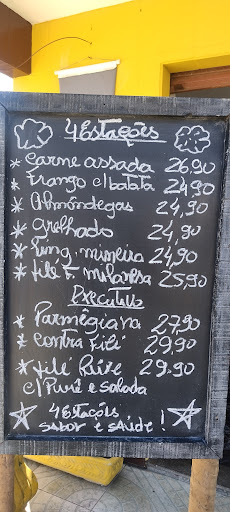 4 Estações
* Carne assada 26,90
* Frango c/ batata 24,90
* Almôndegas 24,90
* Grelhado 24,90
* Ling. mineira 24,90
* filé F. milanesa 25,90
Executivo
* Parmêgiana 27,90
* Contra Filé 29,90
* filé 29,90
c/ Purê e salada
4 Estações
Sabor e saúde!